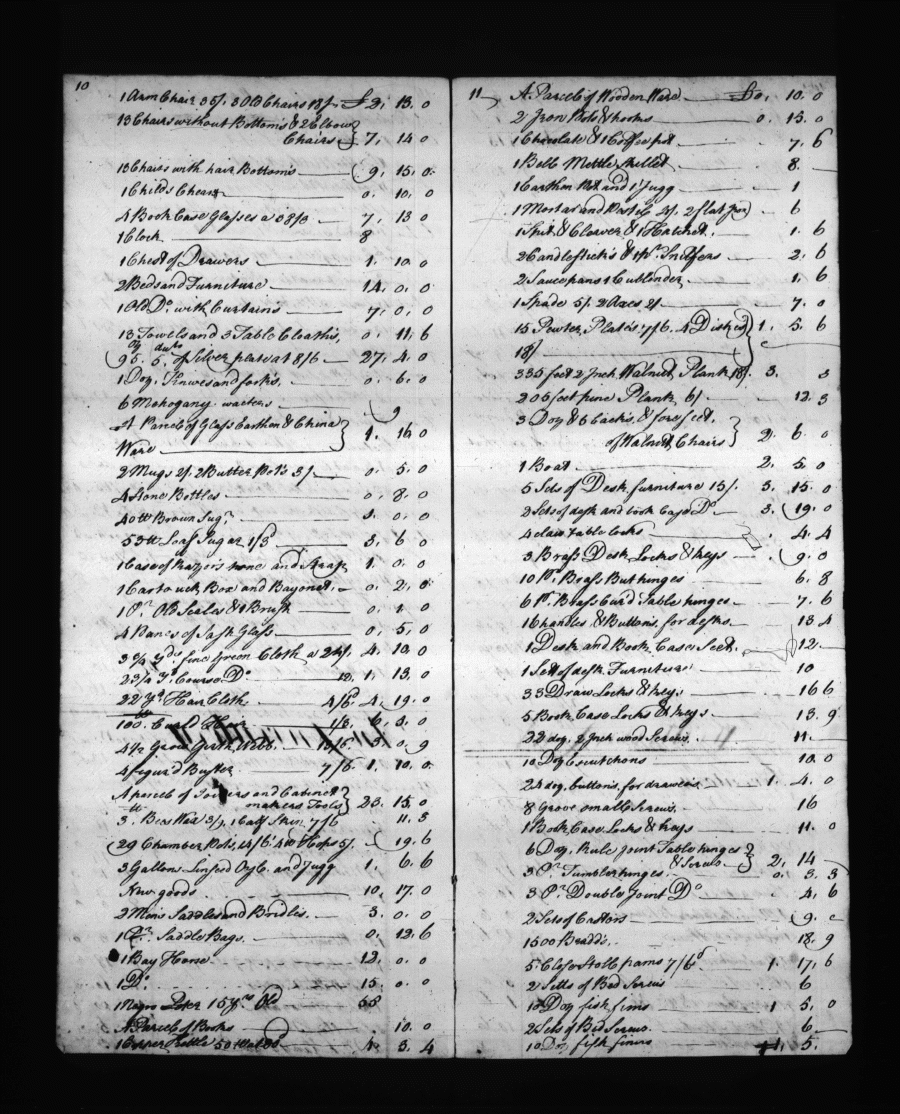 10
1 Arm Chair 35/. 3 Old Chairs 18/- £2, 13. 0
13 Chairs without Bottoms & 2 Elbow
Chairs 7, 14 0
13 Chairs with hair Bottoms 9, 15. 0
1 Childs Chear 0. 10. 0
4 Book Case Glasses a 7, 13 0
1 Clock 8
1 Chest of Drawers 1. 10. 0
2 Beds and Furniture 14. 0. 0
1 Old Do. with Curtains 7, 0. 0
13 Towels and 3 Table Cloaths, 0. 11, 6
95. 5. of Silver plate at 8/6 27. 4. 0
1 Doz. Knives and forks. 0. 6. 0
6 Mahogany waiters 9
A Parcel of Glass Earthen & China
Ware 4. 16. 0
2 Mugs 2/. 2 Butter Pots 3/ 0. 5. 0
4 Stone Bottles 0. 8. 0
40 lb Brown Sugr. 1. 0. 0
53 lb Loaf Sugar 1/3 3. 6 0
1 Case of Razors hone and Strap 1. 0. 0
1 Cartouch Box and Bayonet. 0. 2. 0
1 Pr. Old Scales & 1 Brush 0. 1. 0
4 Panes of Sash Glass 0. 5. 0
3 3/4 yds. fine Green Cloth a 24/. 4. 10. 0
2 3/4 Yd. Course Do. 12. 1. 13. 0
22 Yd Hair Cloth 4/6. 4. 19. 0
100 lb Curl'd Hair 1/3. 6. 5. 0
4 1/2 Groce Girth Webb. 3. 0. 9
4 Buster 7/6. 1. 10. 0
A parcel of Joiners and Cabinet
makers Tools 23. 15. 0
3 lb. Bees Wax 3/9. 1 Calf Skin 7/6 11. 3
29 Chamber Pots, 14/6 4 lb Hops 5/. 19. 6
3 Gallons Linseed Oyl. and Jugg 1. 6. 6
New goods 10. 17. 0
2 Mens Saddles and Bridles. 3. 0. 0
1 Pr. Saddle Bags. 0. 12. 6
1 Bay Horse 12. 0. 0
1 Do. 15. 0. 0
1 Negro Peter 15 Yrs Old 55
A Parcel of Books 10. 0
1 Copper Kettle 50 lb 4. 3. 4
11
A Parcel of Wooden Ware £0. 10. 0
2 Iron Pots & hooks 0. 15. 0
1 Chocolate & 1 Coffee pot 7. 6
1 Bell Mettle Skillet 8.
1 Earthen Pot and 1 Jugg 1
1 Mortar and Pestle 4/. 2 flat Iron 6
1 Spit & Cleaver & 1 Hatchet. 1. 6
2 Candlesticks & 1 Pr. Snuffers 2. 6
2 Saucepans 1 Cullender 1. 6
1 Spade 5/. 2 Axes 2/. 7. 0
15 Pewter Plates 7/6. 4 Dishes
18/ 1. 5. 6
335 feet 2 Inch Walnut Plank 18/. 3. 3
205 feet pine Plank 6/ 12. 3
3 Doz & 6 backs. & fore feet
of Walnut Chairs 2. 6. 0
1 Boat 2. 5. 0
5 Sets of Desk furniture 15/. 3. 15. 0
2 Sets of desk and book Case Do. 3. 19. 0
4 claw table locks 4. 4
3 Brass Desk Locks & keys 9. 0
10 Pr. Brass But hinges 6. 8
6 Pr. Brass Table hinges 7. 6
16 handles & Buttons. for desks. 13. 4
1 Desk and Book Case Sett. 12.
1 Sett of desk Furniture 10
33 Draw Locks & keys 16 6
5 Book Case Locks & keys 13. 9
22 doz. 2 Inch wood Screws. 11.
10 Doz Escutchons 10. 0
24 doz. buttons, for drawers. 1. 4. 0
8 Groce small Screws. 16
1 Book Case Locks & keys 11. 0
6 Doz. Rule Joint Table hinges
& Screws 2. 14
3 Pr. Tumbler hinges. 0. 3. 3
3 Pr. Double Joint Do 4. 6
2 Sets of Castors 9. 0
1500 Bradds. 18. 9
5 Close Stool panns 7/6 1. 17. 6
2 Setts of Bed Screws 6
10 Doz fish 1 5. 0
2 Sets of Bed Screws. 6
10 Doz fish 1. 5.